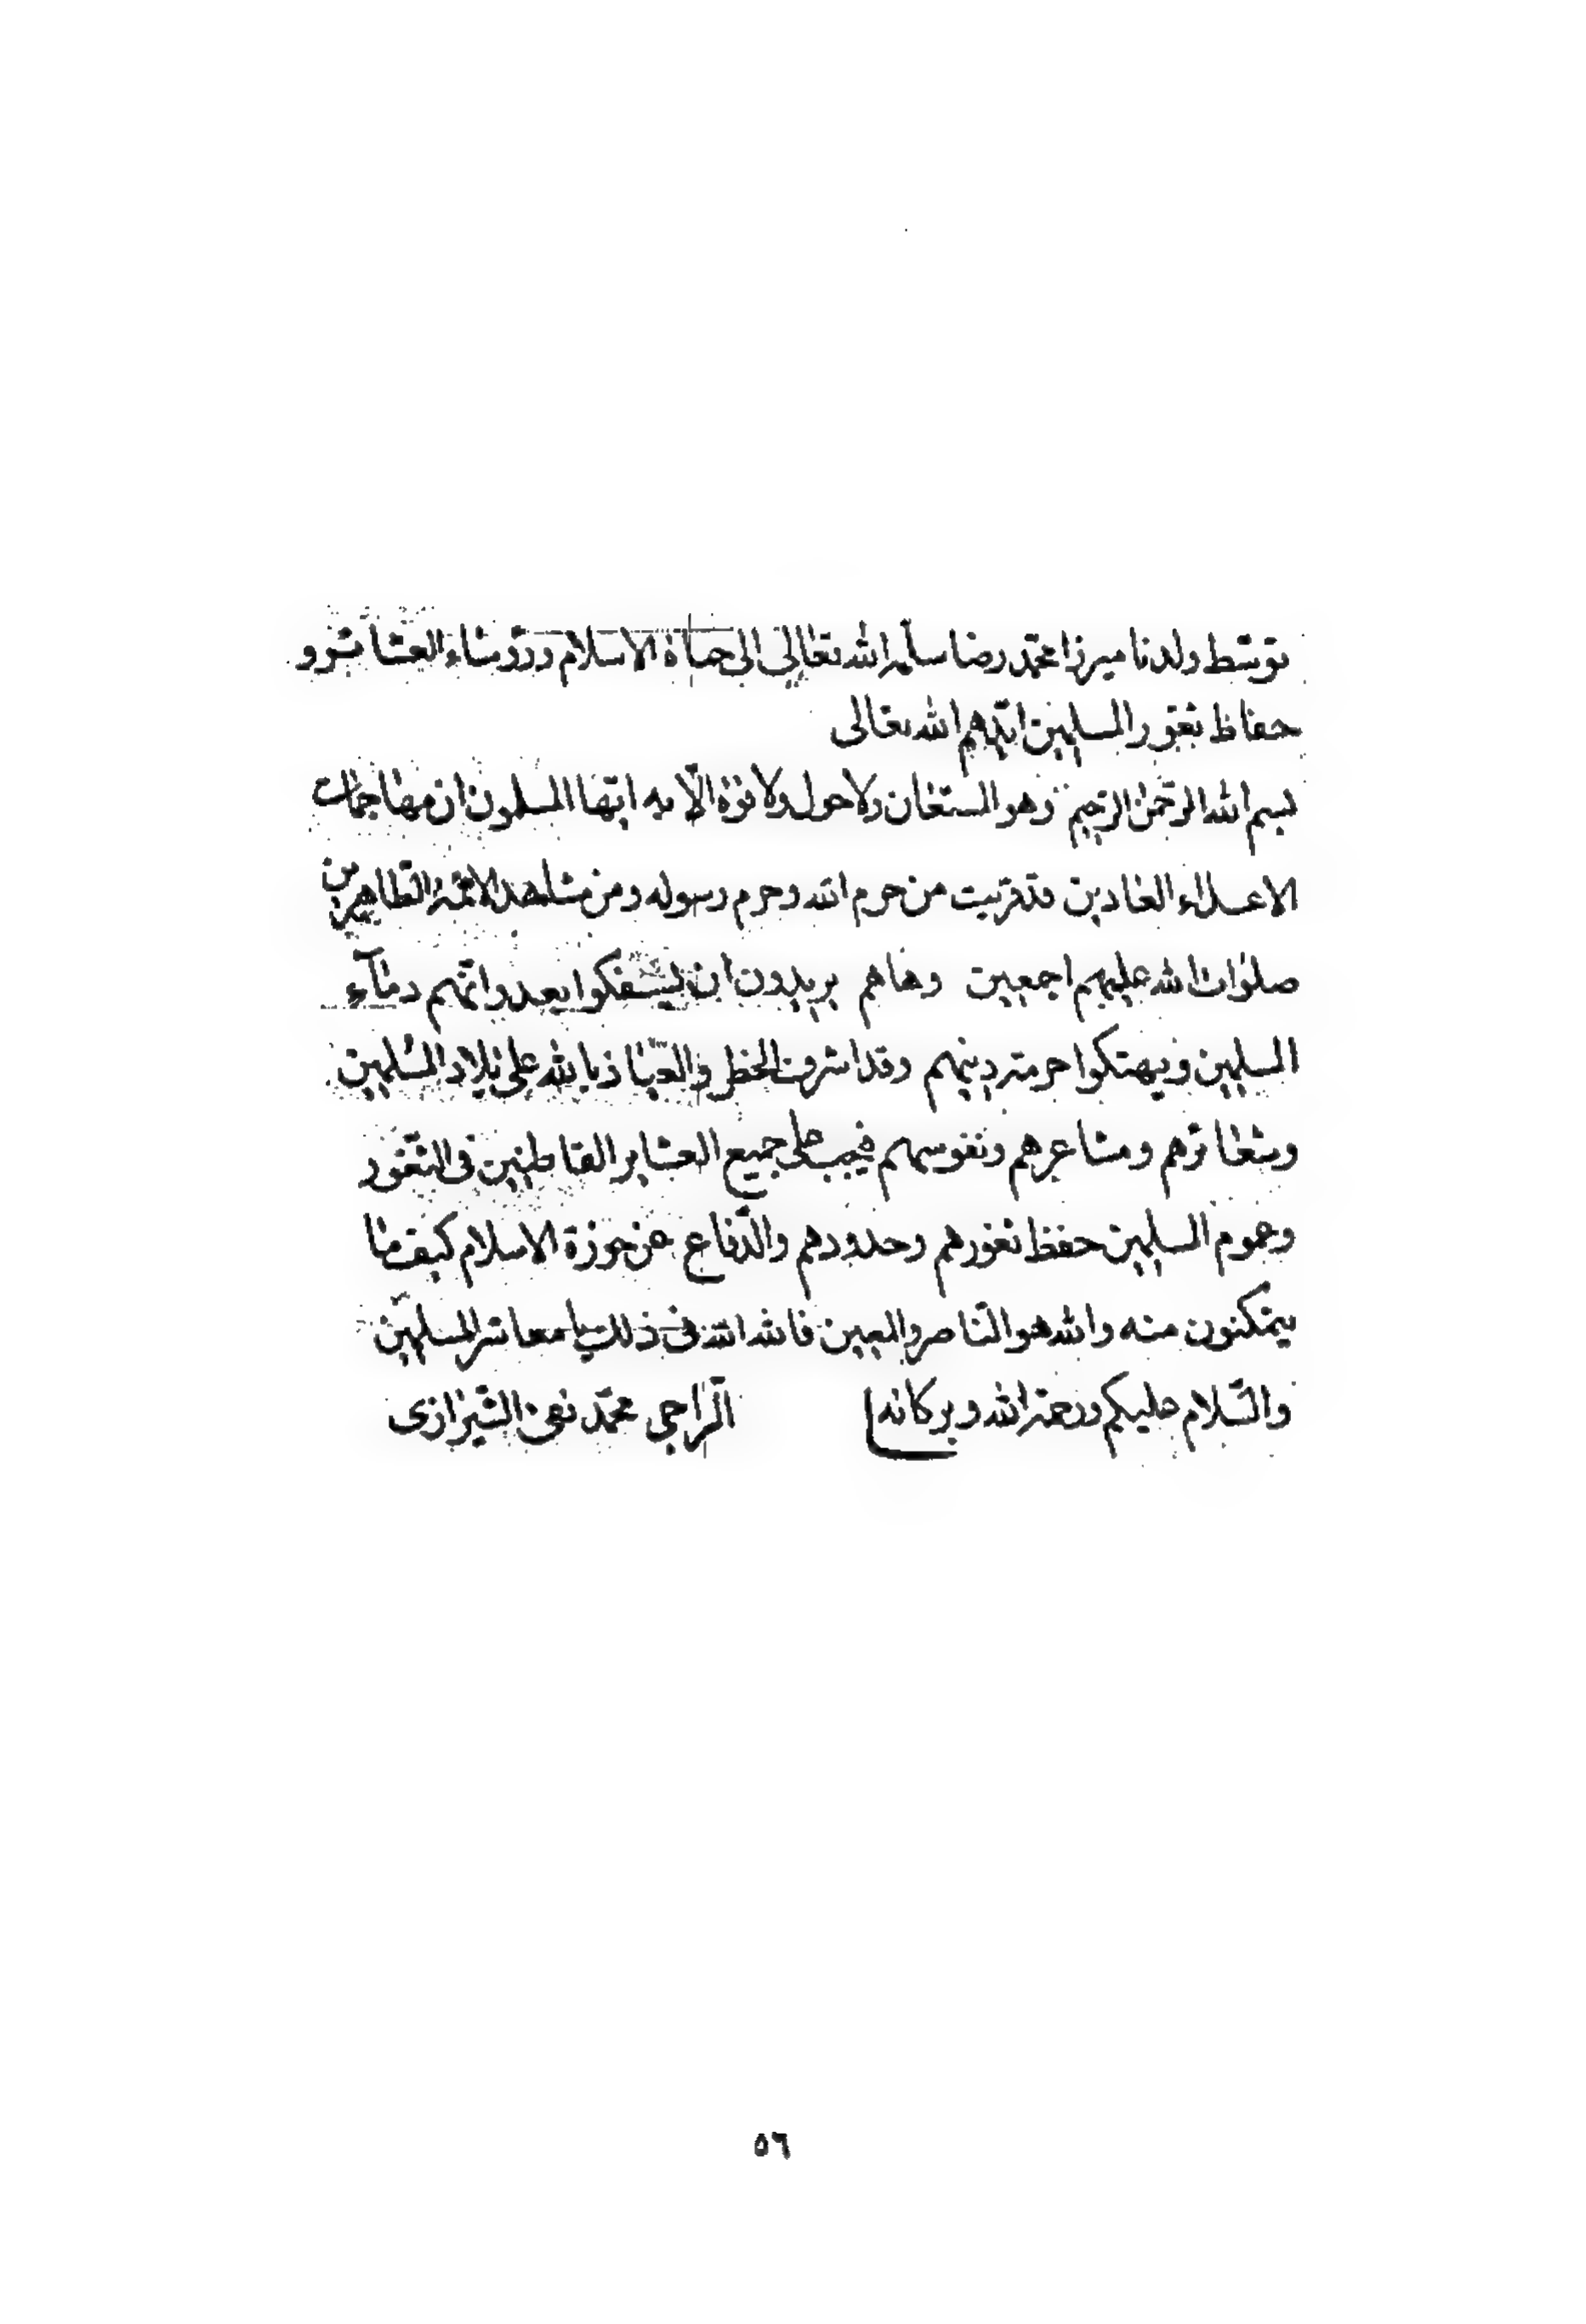 توسّط ولدنا ميرزا محمّد رضا سلّمه الله تعالى الى حماة الاسلام ورؤساء العشائر و
حفاظ ثغور المسلمين ايّدهم الله تعالى
بسم الله الرّحمن الرّحيم وهو المستعان ولا حول ولا قوّة الّا به ايّها المسلمون ان مهاجمات
الاعداء العادين قد قربت من حرم الله وحرم رسوله ومن مشاهد الائمّة الطّاهرين
صلوات الله عليهم اجمعين وها هم يريدون ان يسفكوا بعدوانهم دمآء
المسلمين ويهتكوا حرمة دينهم وقد اشرف الخطر والعياذ بالله على بلاد المسلمين
وشعائرهم ومشاعرهم ونفوسهم فيجب على جميع العشاير القاطنين فى الثغور
وعموم المسلمين حفظ ثغورهم وحدودهم والدّفاع عن حوزة الاسلام كيف ما
يتمكنون منه والله هو النّاصر والمعين فالله الله فى ذلك يا معاشر المسلمين
والسّلام عليكم ورحمة الله وبركاته الرّاجي محمّد تقى الشّيرازى
٥٦